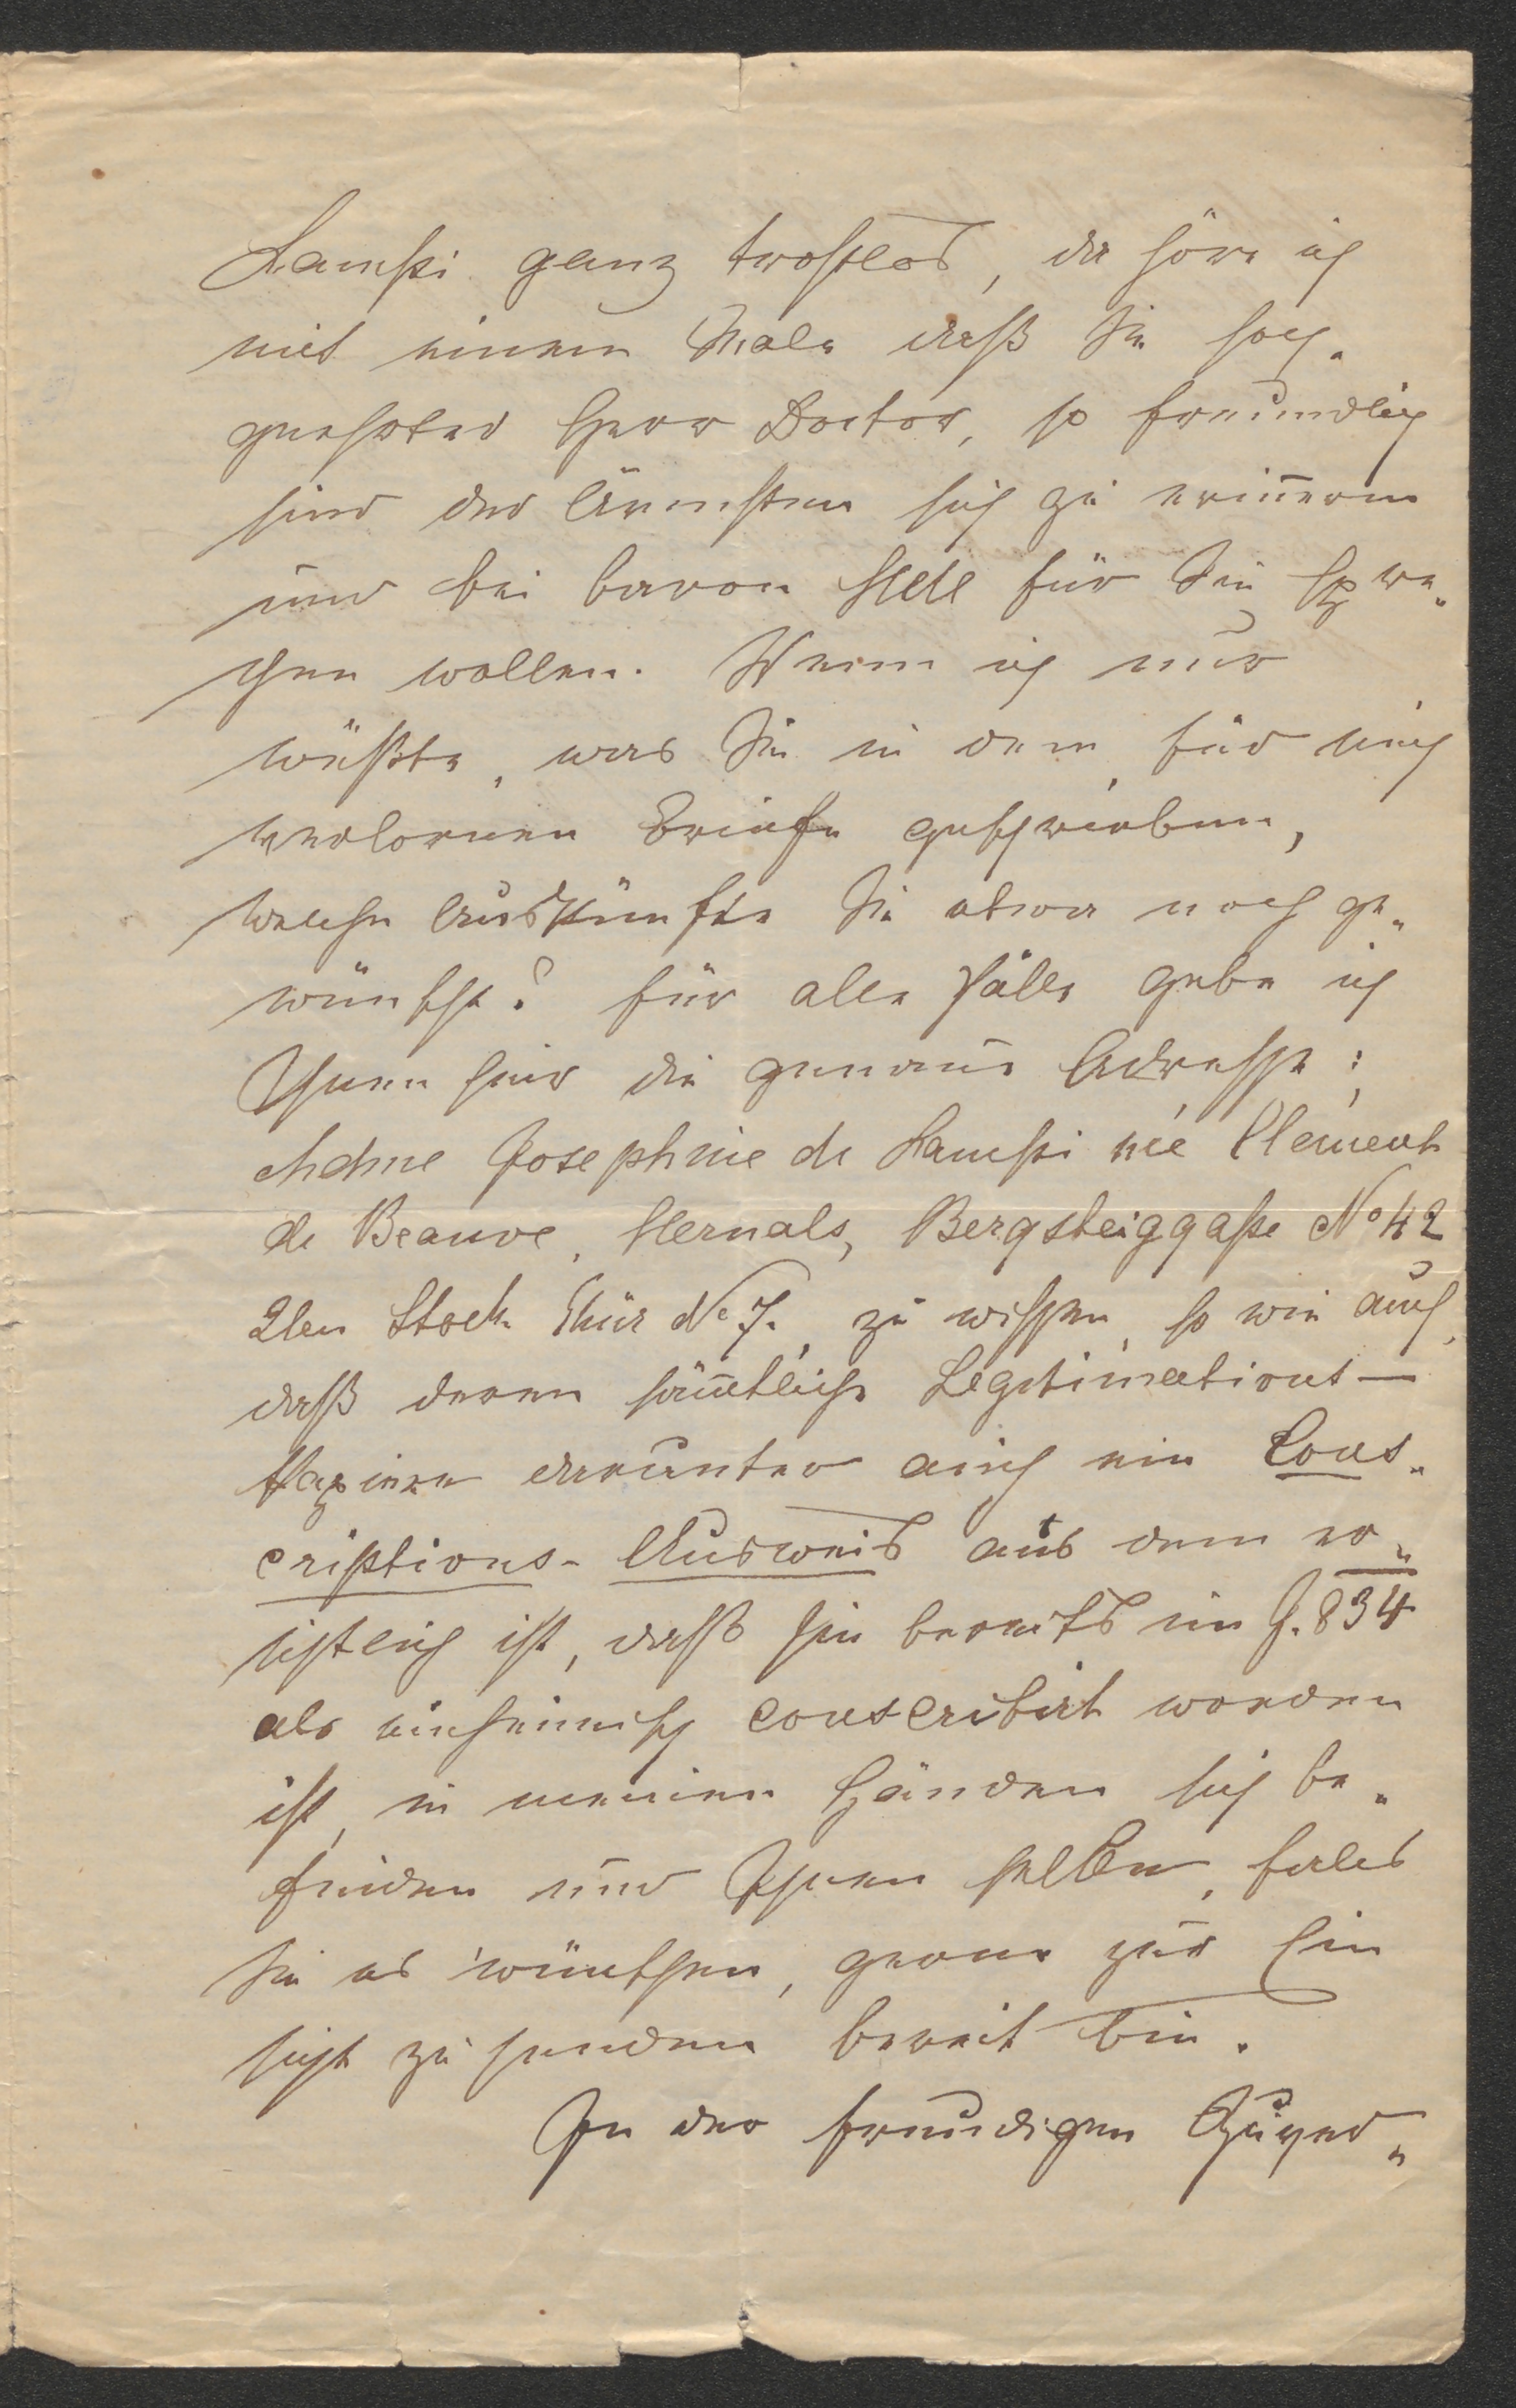 Lampi ganz trostlos, da höre ich
mit einem Male daß Sie hoch-
geehrter Herr Doctor, so freundlich
sind der Ärmsten sich zu erinnern
und bei Baron Hell für Sie spre-
chen wollen. Wenn ich nur
wüßte, was Sie in dem, für mich
verlornen Briefe geschrieben,
welche Auskünfte Sie etwa noch ge-
wünscht? Für alle Fälle gebe ich
Ihnen hier die genaue Adresse;
Mdme Josephine de Lampi née Clement
de Beauve, Hernals, Bergsteiggaße No 42
2ten Stock Thür No 7. zu wissen, so wie auch,
daß deren säm̅tliche Legitimations-
Papiere darunter auch ein Cons-
criptions-Ausweis aus dem er-
sichtlich ist, daß sie bereits im J. 834
als einheimisch conscribirt worden
ist, in meinen Händen sich be-
finden und Ihnen selben, falls
Sie es wünschen, gerne zur Ein
sicht zu senden bereit bin.
In der freudigen Zuver-